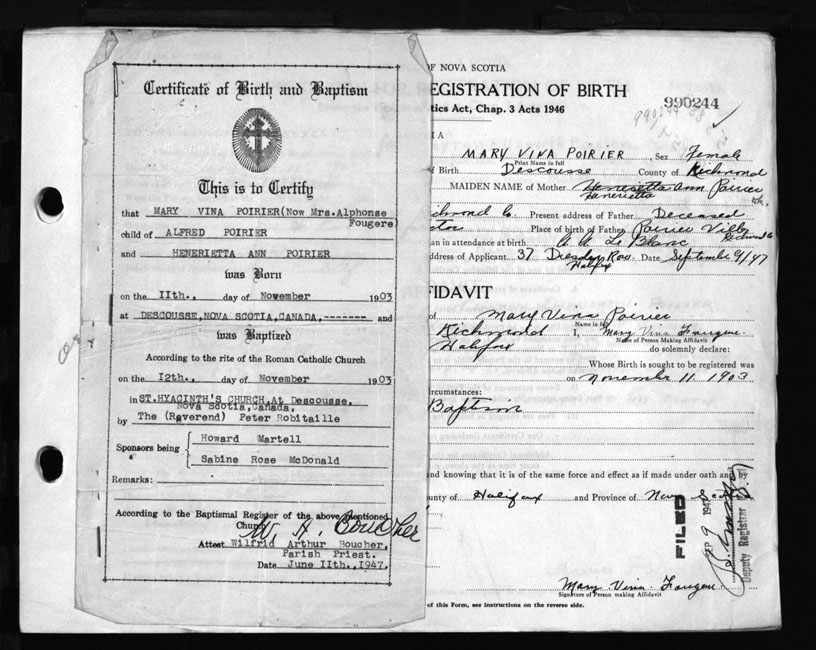 Certificate of Birth and Baptism
This is to Certify
that MARY VINA POIRIER(Now Mrs.Alphonse
Fougere)
child of ALFRED POIRIER
and HENERIETTA ANN POIRIER
was Born
on the IIth., day of November 1903
at DESCOUSSE,NOVA SCOTIA,CANADA,------- and
was Baptized
According to the rite of the Roman Catholic Church
on the I2th., day of November 1903
in ST.HYACINTH'S CHURCH,At Descousse,
Nova Scotia,Canada,
by The (Reverend) Peter Robitaille
Sponsors being Howard Martell
Sabine Rose McDonald
Remarks:
According to the Baptismal Register of the above mentioned
Church
W. A. Boucher
Attest Wilfrid Arthur Boucher,
Parish Priest.
Date June IIth.,1947.
OF NOVA SCOTIA
REGISTRATION OF BIRTH
990244
tics Act, Chap. 3 Acts 1946
IA
MARY VINA POIRIER, Sex Female
Print Name in full
of Birth Descousse County of Richmond
MAIDEN NAME of Mother Henrietta Ann Poirier
Henerietta
chmond C. Present address of Father Deceased
Place of birth of Father Poirier Ville
Richmond C
an in attendance at birth A. A. Le Blanc
ddress of Applicant 37 Dresden Row Date September 9/47
Halifax
FFIDAVIT
of Mary Vina Poirier
Name in full
Richmond I, Mary Vina Fougere
Name of Person Making Affidavit
Halifax do solemnly declare:
Whose Birth is sought to be registered was
on November 11 1903
circumstances:
Baptism
and knowing that it is of the same force and effect as if made under oath and by
unty of Halifax and Province of Nova
FILED
SEP 9 1947
Deputy Registrar
Mary Vina Fougere
Signature of Person making Affidavit
of this Form, see instructions on the reverse side.